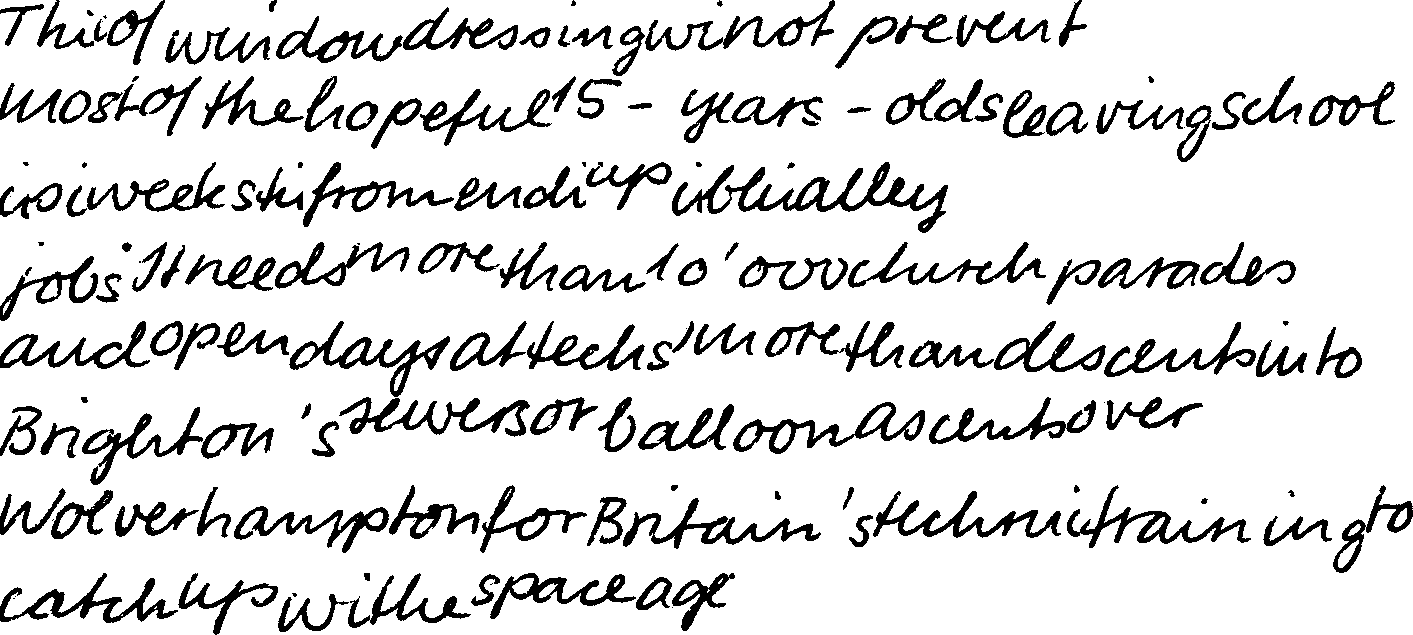 This of window dressing wi not prevent
most of the hopeful 15 - years - olds leaving school
in si weeks ti from endi up i bli alley
jobs. It needs more than 10'000 church parades
and open days at techs, more than descents into
Brighton's sewers or balloon ascents over
Wolverhampton for Britain's technic training to
catch up withe space age